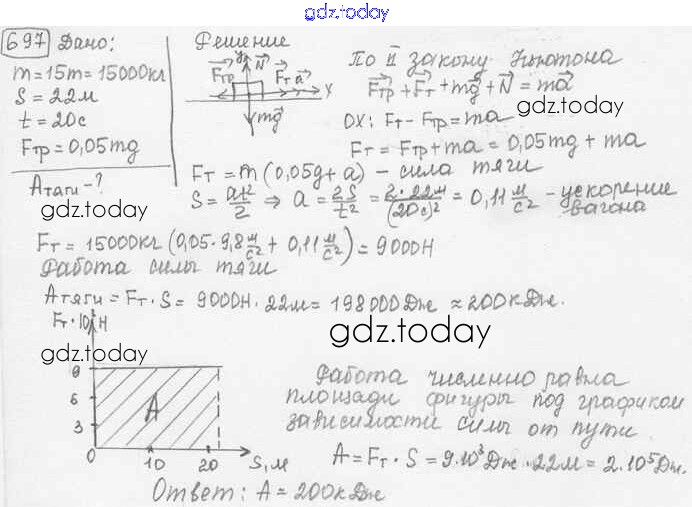 gdz.today
697 Дано:
m = 15т = 15000кг
S = 22м
t = 20с
Fтр = 0,05mg
Aтяги - ?
gdz.today
Решение
y N
Fтр Fт a
x
mg
По II закону Ньютона
Fтр + Fт + mg + N = ma
gdz.today
OX: Fт - Fтр = ma
Fт = Fтр + ma = 0,05mg + ma
Fт = m(0,05g + a) - сила тяги
S = at²/2 ⇒ a = 2S/t² = 2·22м/(20с)² = 0,11 м/с² - ускорение вагона
Fт = 15000кг (0,05·9,8 м/с² + 0,11 м/с²) = 9000Н
Работа силы тяги
Aтяги = Fт · S = 9000Н · 22м = 198000Дж ≈ 200кДж.
gdz.today
Fт·10³Н
gdz.today
9
6
3
0
A
10
20
S, м
Работа численно равна
площади фигуры под графиком
зависимости силы от пути.
A = Fт · S = 9·10³Дж · 22м = 2·10⁵Дж.
Ответ: A = 200кДж
gdz.today